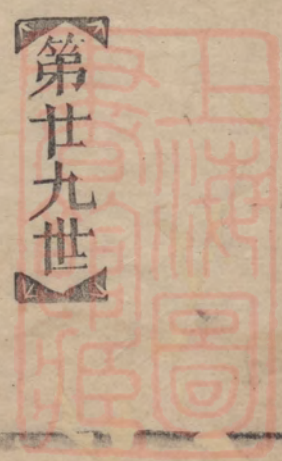 第廿九世
上海圖
書館藏